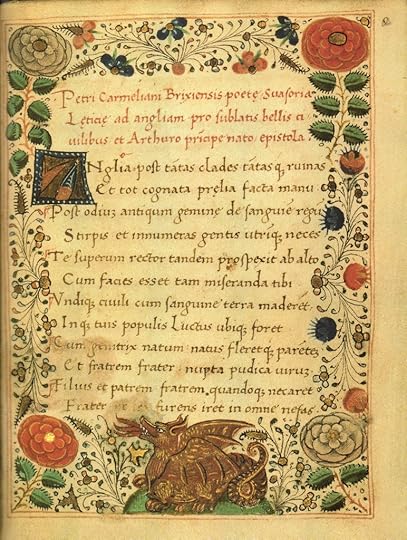 Petri Carmeliani Brixiensis poetę Suasoria
Lęticię ad angliam pro sublatis bellis ci
uilibus et Arthuro prīcipe nato epistola
ANglia post tātas clades tātasq; ruinas
Et tot cognata pręlia facta manu
Post odiū antiquū geminę de sanguīe regū
Stirpis et innumeras gentis utriq; neces
Te superum rector tandem prospexit ab alto
Cum facies esset tam miseranda tibi
Vndiq; ciuili cum sanguine terra maderet
Inq; tuis populis Luctus ubiq; foret
Cum genitrix natum natus fleretq; parētē
Et fratrem frater nupta pudica uirum
Filius et patrem fratrem quandoq; necaret
Frater furens iret in omne nefas